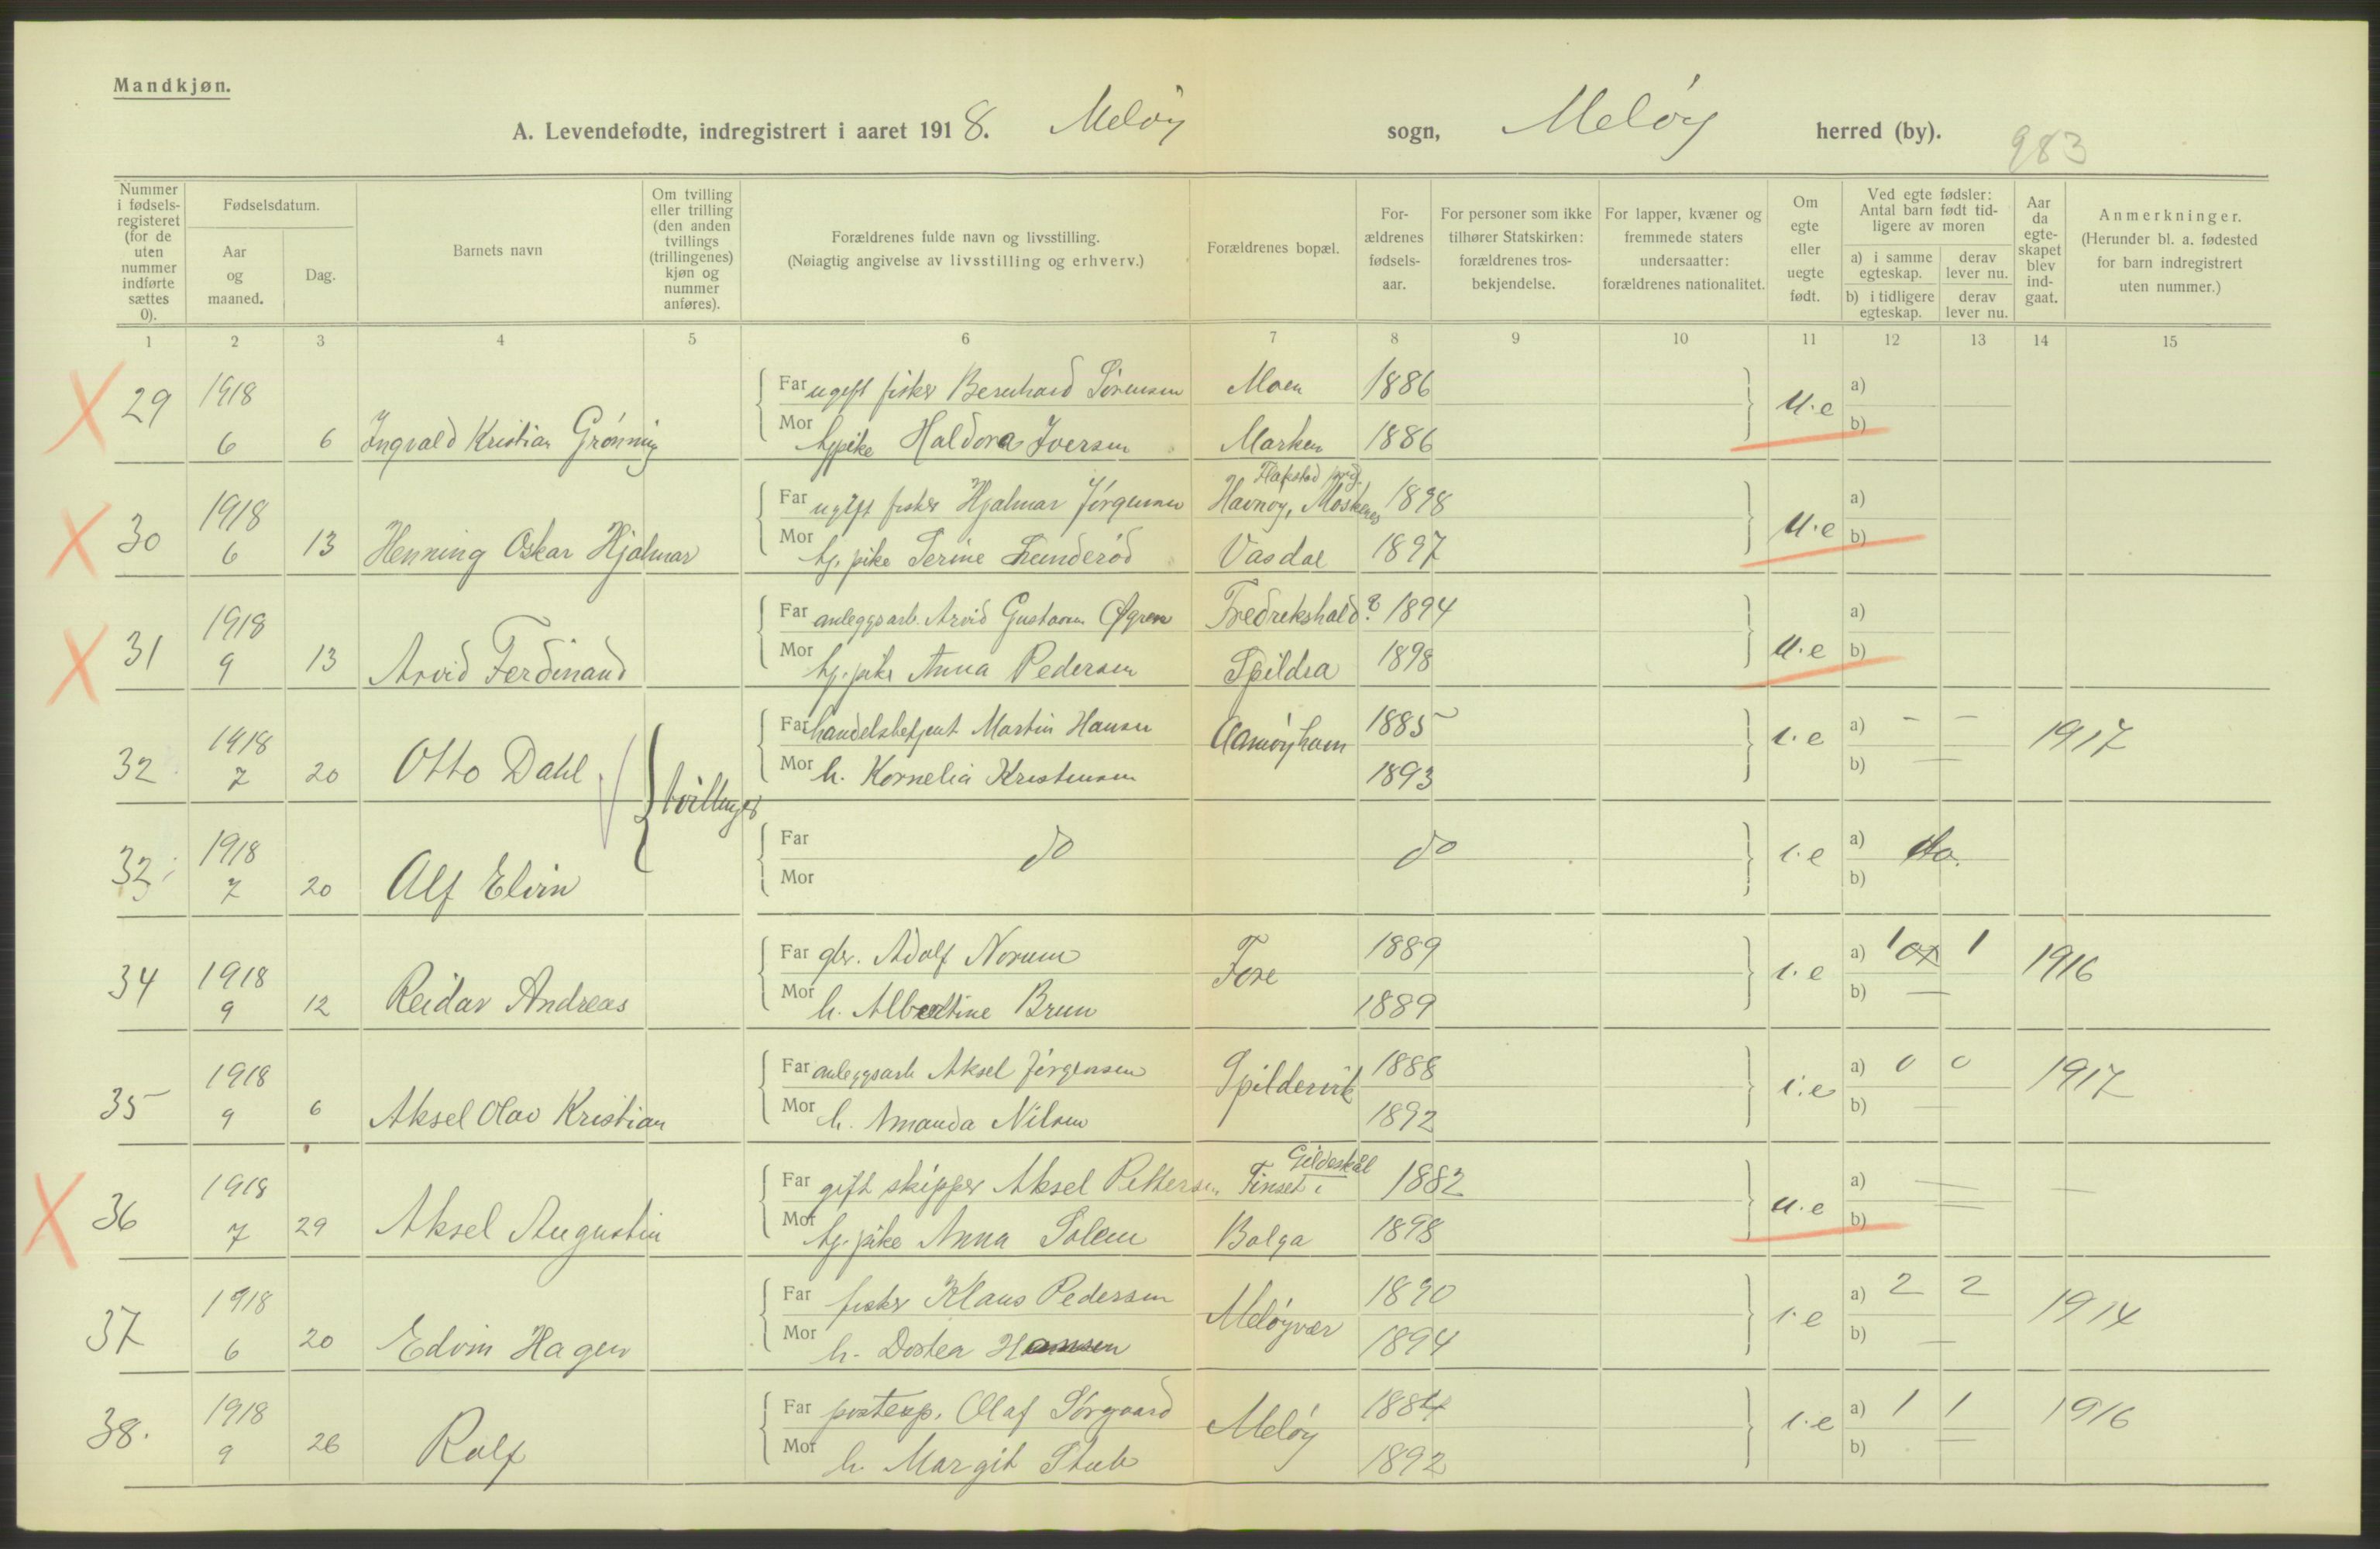 Mandkjøn.
A. Levendefødte, indregistrert i aaret 1918. Meløy sogn, Meløy herred (by). 983
Nummer i fødselsregisteret (for de uten nummer indførte sættes 0).
Fødselsdatum.
Aar og maaned.
Dag.
Barnets navn
Om tvilling eller trilling (den anden tvillings (trillingenes) kjøn og nummer anføres).
Forældrenes fulde navn og livsstilling.
(Nøiagtig angivelse av livsstilling og erhverv.)
Forældrenes bopæl.
Forældrenes fødselsaar.
For personer som ikke tilhører Statskirken: forældrenes trosbekjendelse.
For lapper, kvæner og fremmede staters undersaatter: forældrenes nationalitet.
Om egte eller uegte født.
Ved egte fødsler: Antal barn født tidligere av moren
a) i samme egteskap.
derav lever nu.
b) i tidligere egteskap.
derav lever nu.
Aar da egteskapet blev indgaat.
Anmerkninger.
(Herunder bl. a. fødested for barn indregistrert uten nummer.)
1 2 3 4 5 6 7 8 9 10 11 12 13 14 15
29 1918 Far ugift fisker Bernhard Sørensen Moen 1886 u.e a)
6 6 Ingvald Kristian Grønning Mor tj.pike Haldora Iversen Marken 1886 b)
Flakstad prgj.
30 1918 Far ugift fisker Hjalmar Jørgensen Havnøy, Moskenes 1898 u.e a)
6 13 Henning Oskar Hjalmar Mor tj. pike Serine Lunderød Vasdal 1897 b)
31 1918 Far anleggsarb. Arvid Gustavsen Øgren Fredrekshald? 1894 u.e a)
9 13 Arvid Ferdinand Mor tj. pike Anna Pedersen Spildra 1898 b)
32 1918 Far handelsbetjent Martin Hansen Aamøyhavn 1885 i.e a) - - 1917
7 20 Otto Dahl tvillinger Mor h. Kornelia Kristensen 1893 b) —
32 1918 Far do do i.e a) do.
7 20 Alf Elvin Mor b)
34 1918 Far gbr. Adolf Norum Fore 1889 i.e a) 1 1 1916
9 12 Reidar Andreas Mor h. Albertine Brun 1889 b) —
35 1918 Far anleggsarb Aksel Jørgensen Spildervik 1888 i.e a) 0 0 1917
9 6 Aksel Olav Kristian Mor h. Amanda Nilsen 1892 b) —
Gildeskål
36 1918 Far gift skipper Aksel Pettersen Finset i 1882 u.e a) — —
7 29 Aksel Augustin Mor tj. pike Anna Solem Bolga 1898 b) —
37 1918 Far fisker Klaus Pedersen Meløyvær 1890 i.e a) 2 2 1914
6 20 Edvin Hagen Mor h. Dortea Hansen 1894 b) —
38. 1918 Far postexp. Olaf Sørgaard Meløy 1884 i.e a) 1 1 1916
9 26 Rolf Mor h. Margit Stub 1892 b) —